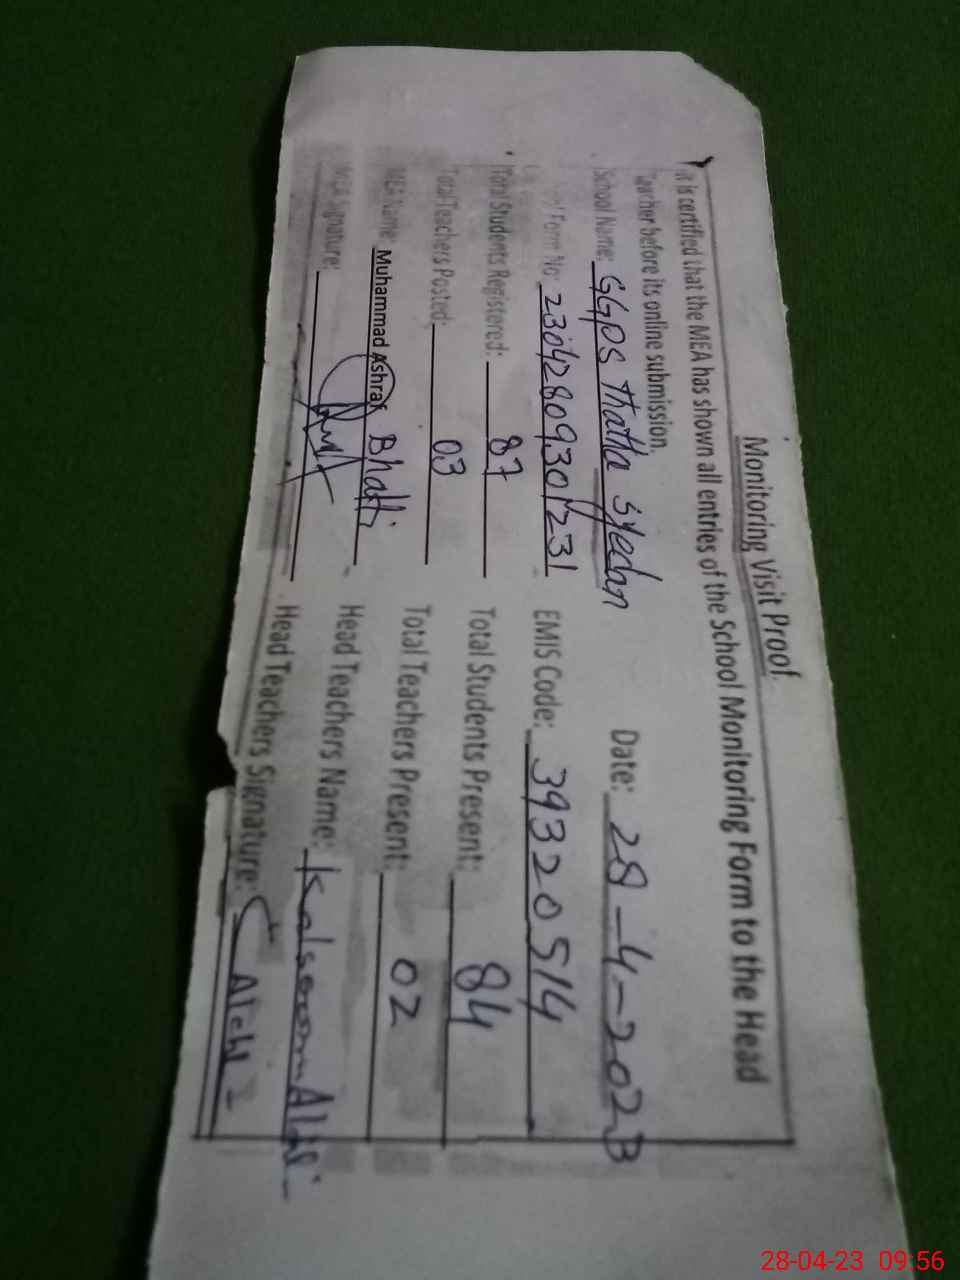 Monitoring Visit Proof
It is certified that the MEA has shown all entries of the School Monitoring Form to the Head
Teacher before its online submission.
School Name: GGPS Thatha syedan Date: 28-4-2023
Form No: 23042809301231 EMIS Code: 39320514
Total Students Registered: 87 Total Students Present: 84
Total Teachers Posted: 03 Total Teachers Present: 02
MEA Name: Muhammad Ashraf Bhatti Head Teachers Name: Kalsoom
MEA Signature: Head Teachers Signature:
28-04-23 09:56